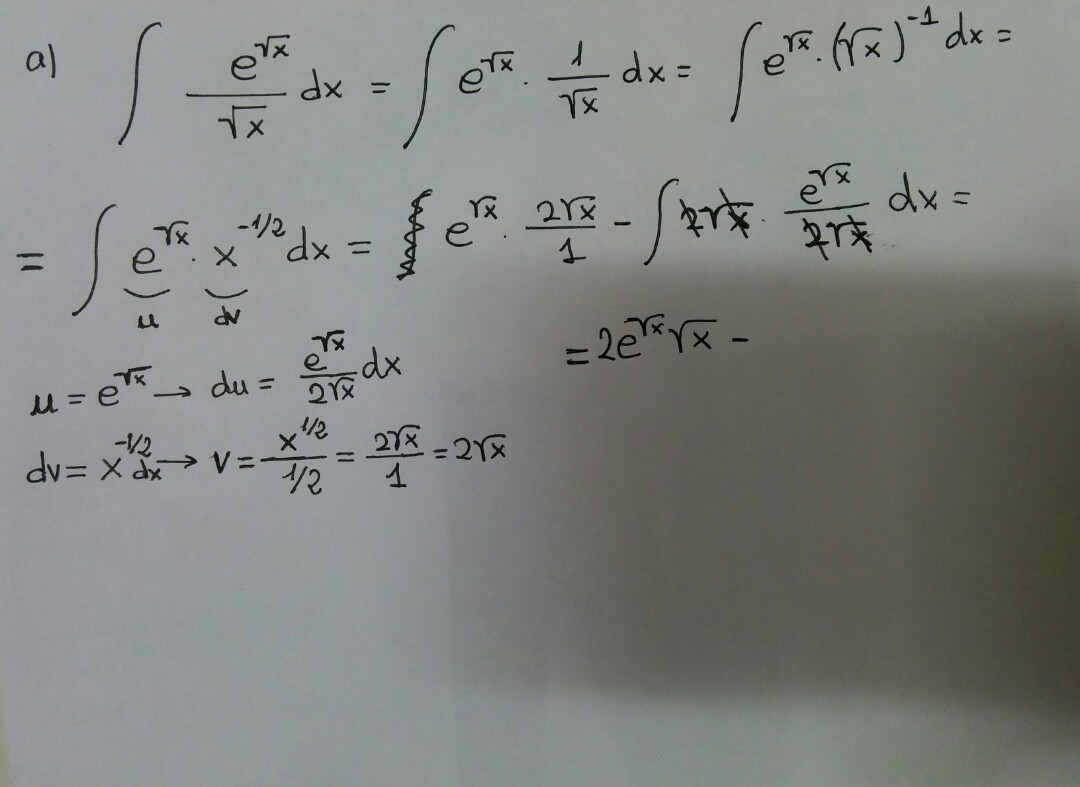 a) ∫ e^√x / √x dx = ∫ e^√x · 1/√x dx = ∫ e^√x · (√x)^-1 dx =
= ∫ e^√x · x^-1/2 dx = e^√x · 2√x/1 - ∫ 2√x · e^√x / 2√x dx =
u dv
= 2e^√x √x -
u = e^√x → du = e^√x / 2√x dx
dv = x^-1/2 dx → v = x^1/2 / 1/2 = 2√x/1 = 2√x